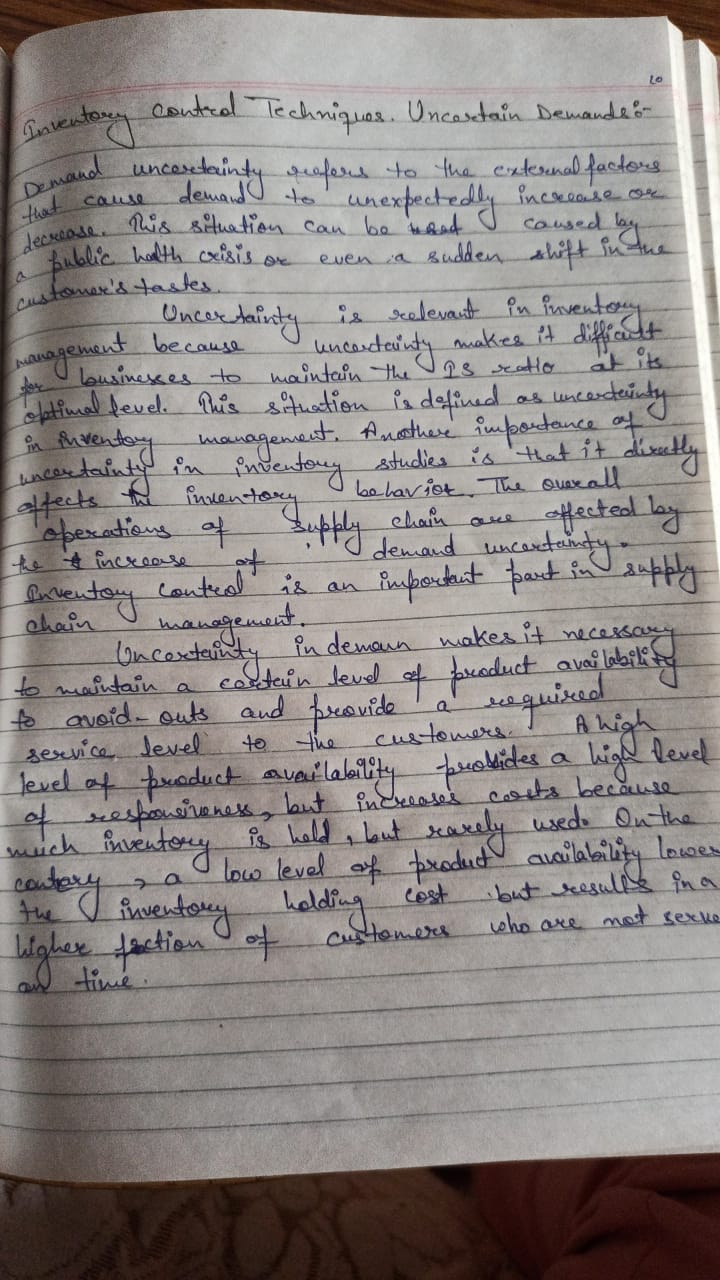 10
Inventory Control Techniques. Uncertain Demands:-
Demand uncertainty refers to the external factors
that cause demand to unexpectedly increase or
decrease. This situation can be caused by
a public halth crisis or even a sudden shift in the
customer's tastes.
Uncertainty is relevant in inventory
management because uncertainty makes it difficult
for businesses to maintain the IS ratio at its
optimal level. This situation is defined as uncertainty
in inventory management. Another importance of
uncertainty in inventory studies is that it directly
affects the inventory behavior. The overall
operations of supply chain are affected by
the increase of demand uncertainty.
Inventory control is an important part in supply
chain management.
Uncertainty in deman makes it necessary
to maintain a certain level of product availability
to avoid-outs and provide a required
service level to the customers. A high
level of product availability provides a high level
of responsiveness, but increases costs because
much inventory is held, but rarely used. On the
contery, a low level of product availability lower
the inventory holding cost but results in a
higher fection of customers who are not serve
on time.